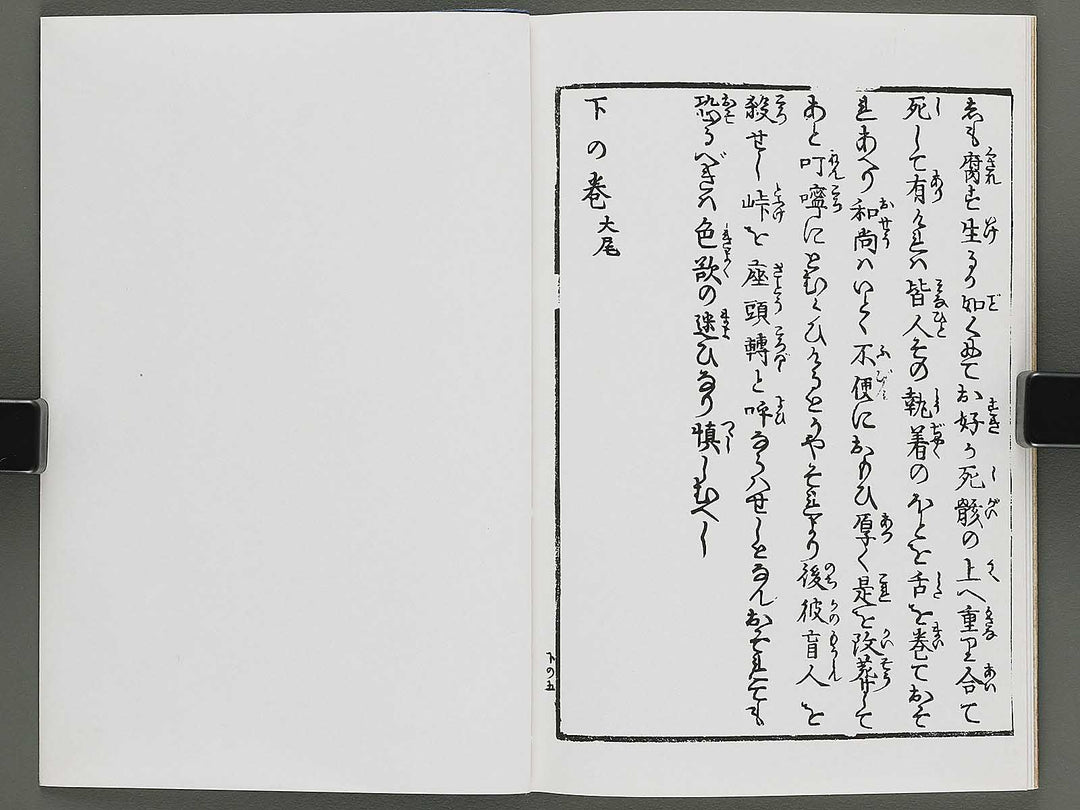 志も腐す生る如くにておが好が死骸の上へ重り合て
死して有ければ皆人その執着のほどを舌を巻ておそ
れあへり和尚はいとゞ不便におもひ厚く是を改葬して
あと叮嚀にとむらひけるとうやそれより後彼盲人を
殺せし峠を座頭轉と呼ならはせしとなんおそれても
恐るべきは色欲の迷ひなり慎しむべし
下の巻大尾
下の五